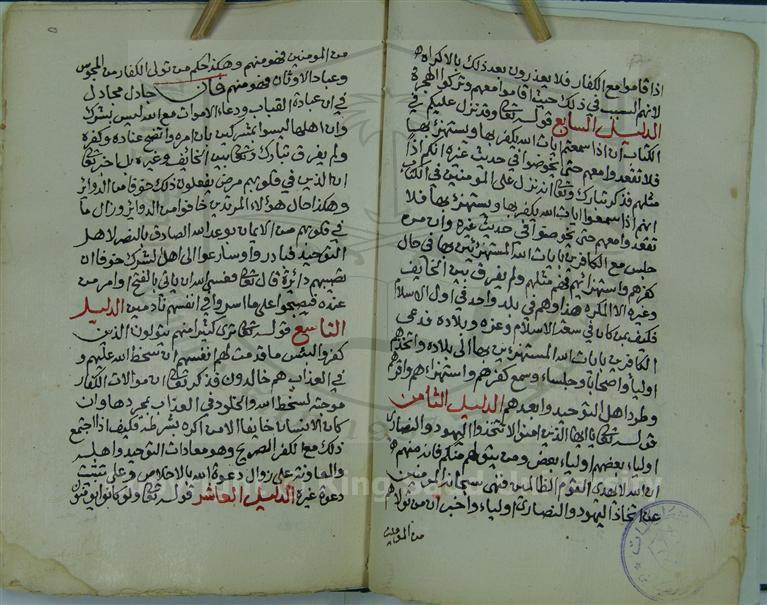 اذا قاموا مع الكفار فلا يعذرون بعد ذلك بالاكراه
لانهم السبب في ذلك حيث اقاموا معهم وتركوا الهجرة
الدليل السابع قوله تعالى وقد نزل عليكم في
الكتاب ان اذا سمعتم ايات الله يكفر بها ويستهزئ بها
فلا تقعدوا معهم حتى يخوضوا في حديث غيره انكم اذا
مثلهم فذكر تبارك وتعالى انه نزل على المومنين في الكتاب
انهم اذا سمعوا ايات الله يكفر بها ويستهزئ بها فلا
تقعدوا معهم حتى يخوضوا في حديث غيره وان من
جلس مع الكافرين بايات الله المستهزئين بها في حال
كفرهم واستهزائهم فهو مثلهم ولم يفرق بين الخايف
وغيره الا المكره هذا وهم في بلد واحد في اول الاسلام
فكيف بمن كان في سعة الاسلام وعزه وبلاده فدعى
الكافرين بايات الله المستهزئين بها الى بلاده واتخذهم
اوليا واصحابا وجلساء وسمع كفرهم واستهزاءهم واقرهم
وطرد اهل التوحيد وابعدهم الدليل الثامن
قوله تعالى يا ايها الذين امنوا لا تتخذوا اليهود والنصارى
اولياء بعضهم اولياء بعض ومن يتولهم منكم فانه منهم
ان الله لا يهدي القوم الظالمين فنهى سبحانه المومنين
عن اتخاذ اليهود والنصارى اولياء واخبر ان من تولاهم
من المومنين
من المومنين فهو منهم وهكذا حكم من تولى الكفار من المجوس
وعباد الاوثان فهو منهم فان جادل مجادل
في ان عبادة القباب ودعاء الاموات مع الله ليس بشرك
وان اهلها ليسوا بمشركين بان امره واتضح عناده وكفره
ولم يفرق تبارك وتعالى بين الخائف وغيره بل اخبر تعالى
ان الذين في قلوبهم مرض يفعلون ذلك خوفا من الدوائر
وهكذا حال هؤلاء المرتدين خافوا من الدوائر وزال ما
في قلوبهم من الايمان بوعد الله الصادق بالنصر لاهل
التوحيد فبادروا وسارعوا الى اهل الشرك خوفا ان
تصيبهم دائرة قال تعالى فعسى الله ان ياتي بالفتح او امر من
عنده فيصبحوا على ما اسروا في انفسهم نادمين الدليل
التاسع قوله تعالى ترى كثيرا منهم يتولون الذين
كفروا لبئس ما قدمت لهم انفسهم ان سخط الله عليهم و
في العذاب هم خالدون فذكر تعالى ان موالات الكفار
موجبة لسخط الله والخلود في العذاب بمجردها وان
كان الانسان خايفا الا من اكره بشرطه فكيف اذا اجتمع
ذلك مع الكفر الصريح وهو معادات التوحيد واهله
والمعاونة على زوال دعوة الله بالاخلاص وعلى تثبيت
دعوة غيره الدليل العاشر قوله تعالى ولو كانوا يومنون